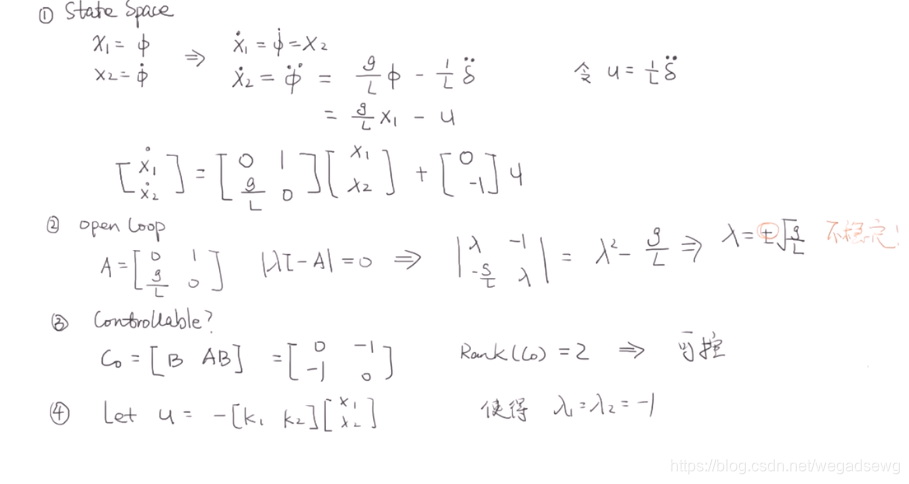 ① State Space
x₁ = ϕ ⇒ ẋ₁ = ϕ̇ = x₂
x₂ = ϕ̇ ẋ₂ = ϕ̈ = g/L ϕ - 1/L δ̈ 令 u = 1/L δ̈
= g/L x₁ - u
[ẋ₁ ẋ₂] = [0 1 g/L 0][x₁ x₂] + [0 -1] u
② open loop
A = [0 1 g/L 0] |λI-A| = 0 ⇒ |λ -1 -g/L λ| = λ² - g/L ⇒ λ = ±√g/L 不稳定!
③ Controllable?
Co = [B AB] = [0 -1 -1 0] Rank(Co) = 2 ⇒ 可控
④ Let u = -[k₁ k₂][x₁ x₂] 使得 λ₁ = λ₂ = -1
https://blog.csdn.net/wegadsawg